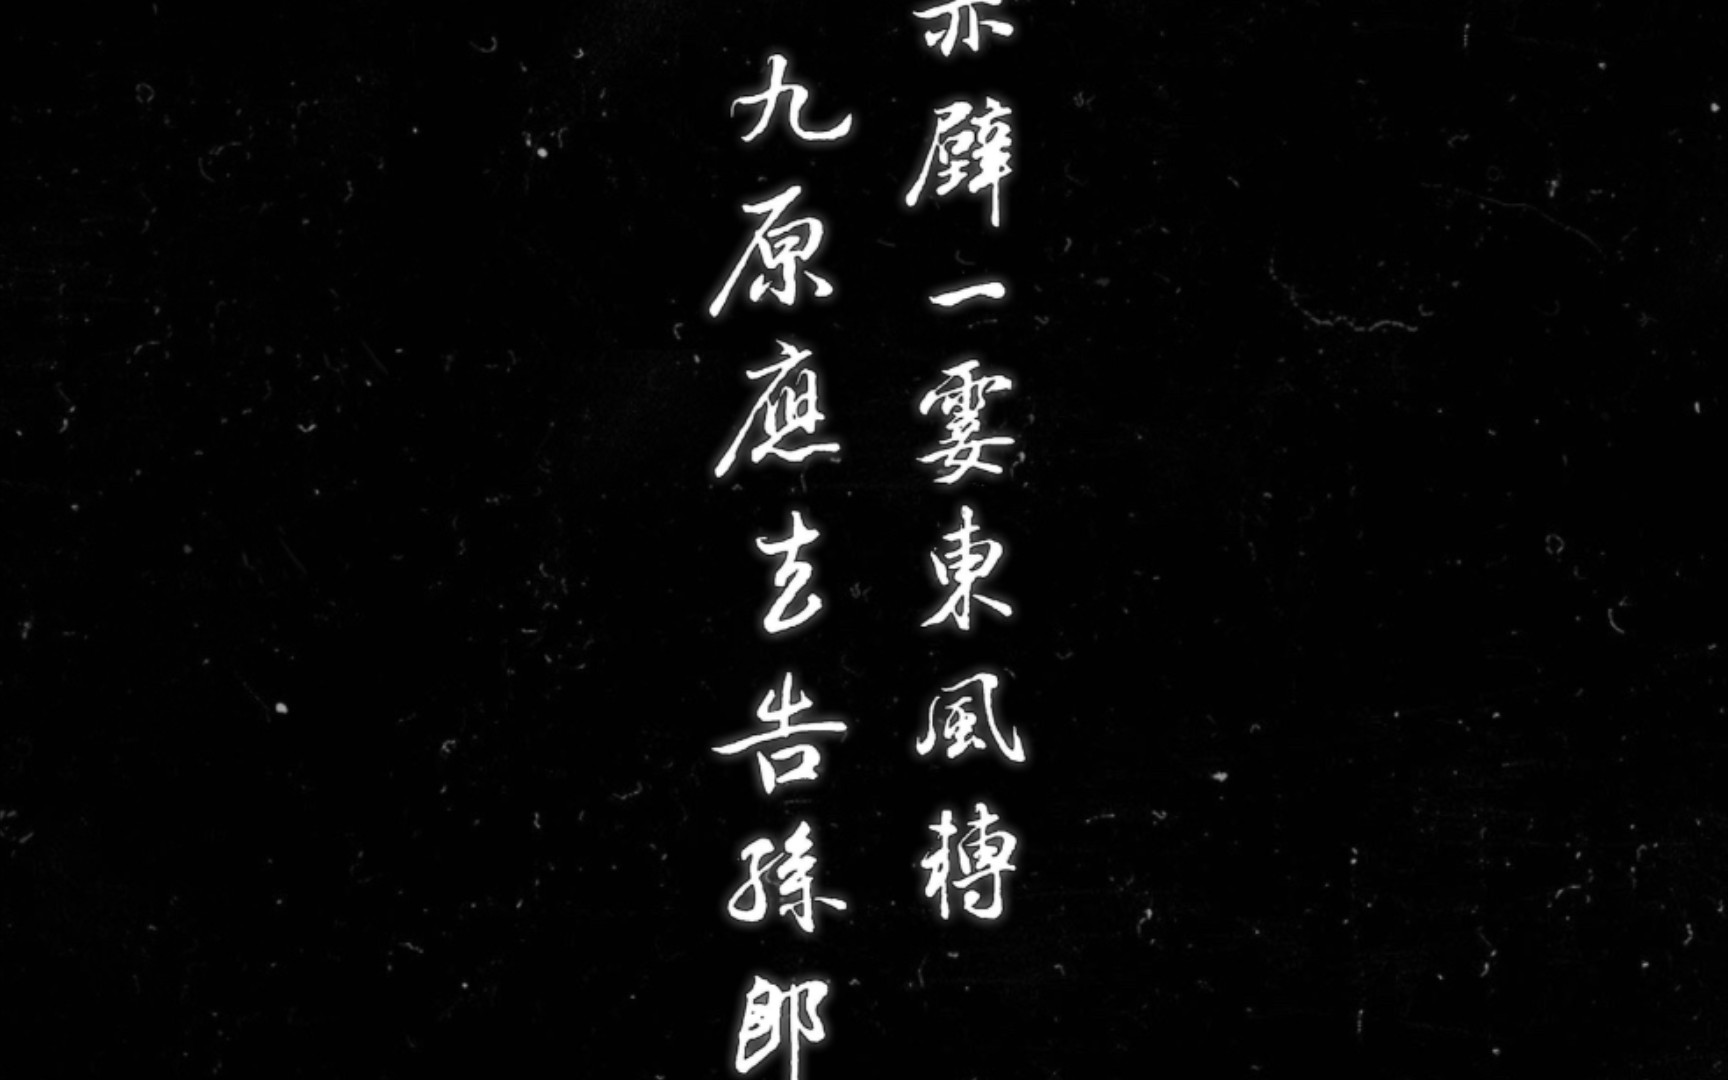 赤壁一霎東風轉
九原應去告孫郎